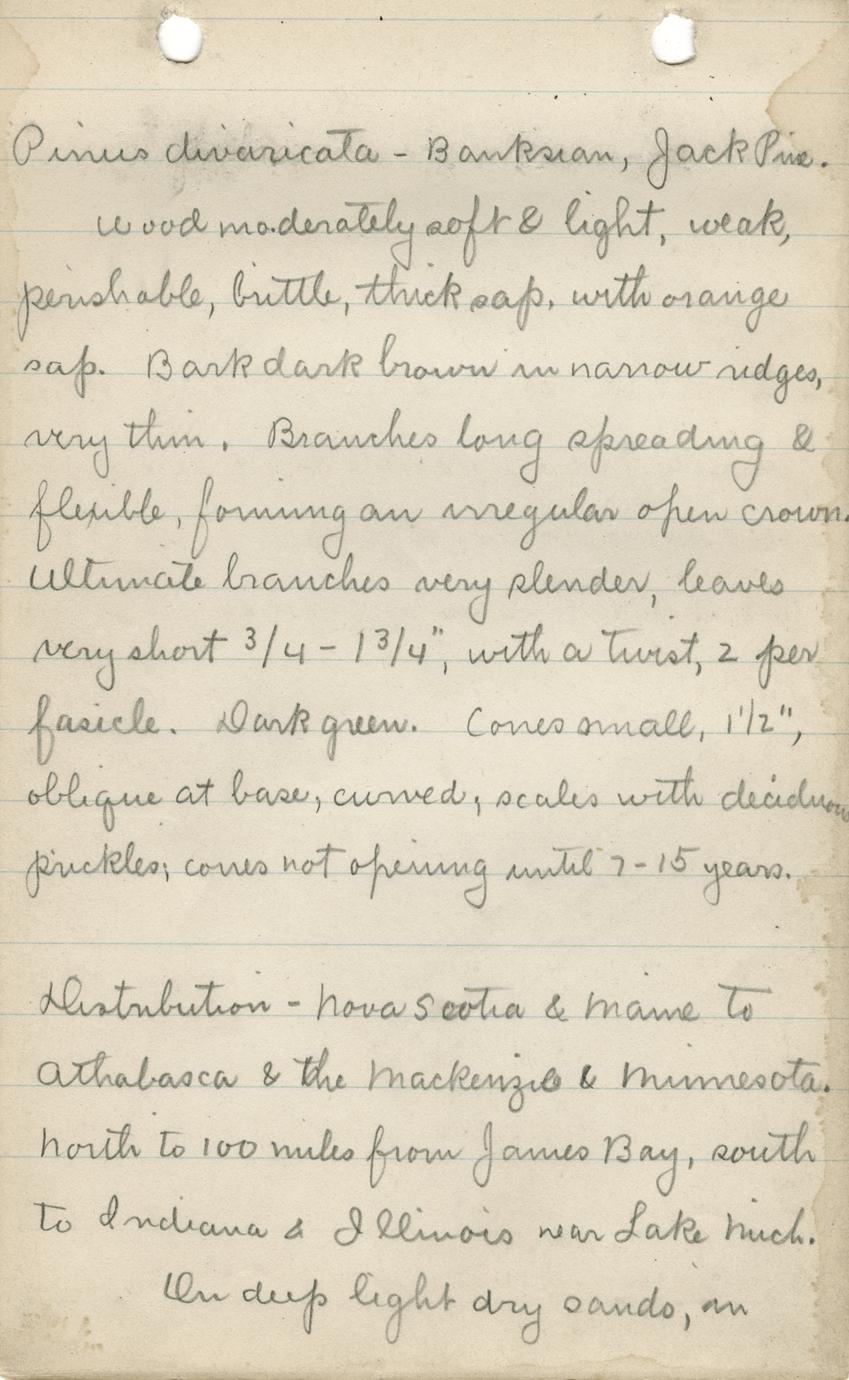 Pinus divaricata - Banksian, Jack Pine.
Wood moderately soft & light, weak,
perishable, brittle, thick sap. with orange
sap. Bark dark brown in narrow ridges,
very thin. Branches long spreading &
flexible, forming an irregular open crown.
Ultimate branches very slender, leaves
very short 3/4 - 1 3/4", with a twist, 2 per
fasicle. Dark green. Cones small, 1 1/2",
oblique at base, curved; scales with deciduous
prickles; cones not opening until 7-15 years.
Distribution - Nova Scotia & Maine to
Athabasca & the Mackenzie & Minnesota.
North to 100 miles from James Bay, south
to Indiana & Illinois near Lake Mich.
On deep light dry sands, in